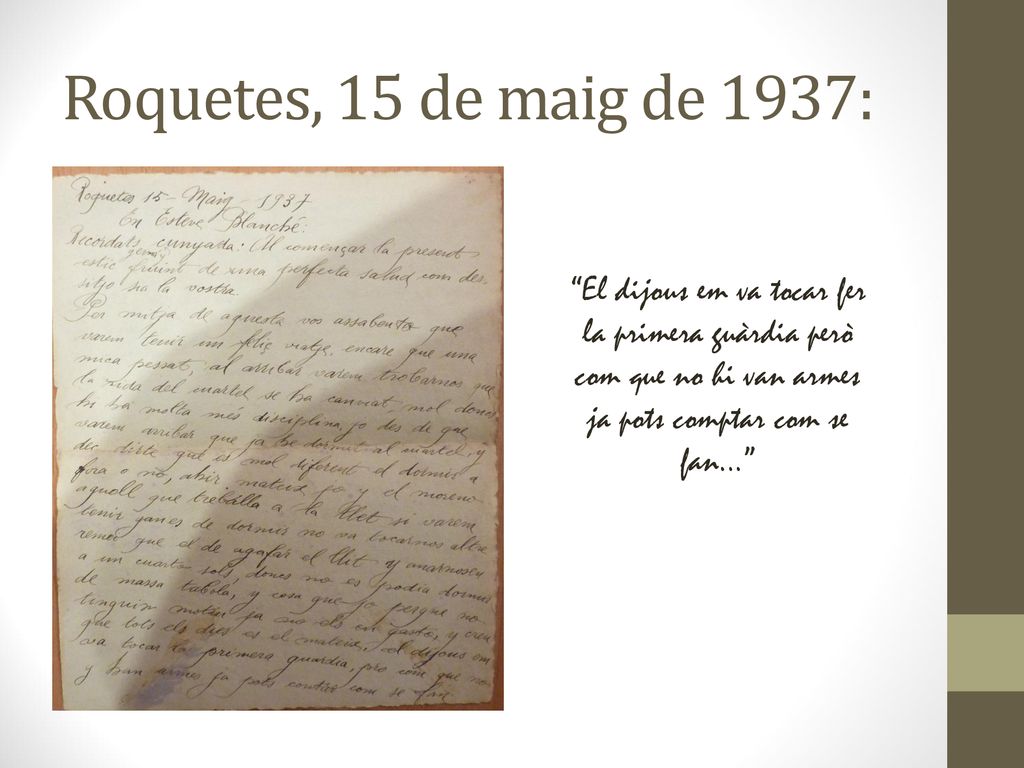 Roquetes, 15 de maig de 1937:
Roquetes 15 - Maig - 1937
En Esteve Blanché:
Recordats cunyada: Al començar la present
estic fruint de una perfecta salud com des-
sitjo sia la vostra.
Per mitja de aquesta vos assabento que
varem tenir un feliç viatje, encare que una
mica pessat, al arribar varem trobarnos que
la vida del cuartel se ha canviat, mol doncs
hi ha molta més disciplina, jo des de que
varem arribar que ja he dormit al cuartel, y
dec dirte que es mol diferent el dormir a
fora o no, ahir mateix jo y el moreno
aquell que treballa a la Llet si varem
tenir ganes de dormir no va tocarnos altre
remei que el de agafar el llit y anarnosen
a un cuarto sols, doncs no es podia dormir
de massa tabola, y cosa que jo perque no
tinguin motiu ja no els en gasto, y creu
que tots els dies es el mateix, el dijous em
va tocar la primera guardia, pro com que no
y han armes ja pots contar com se fan
“El dijous em va tocar fer
la primera guàrdia però
com que no hi van armes
ja pots comptar com se
fan...”